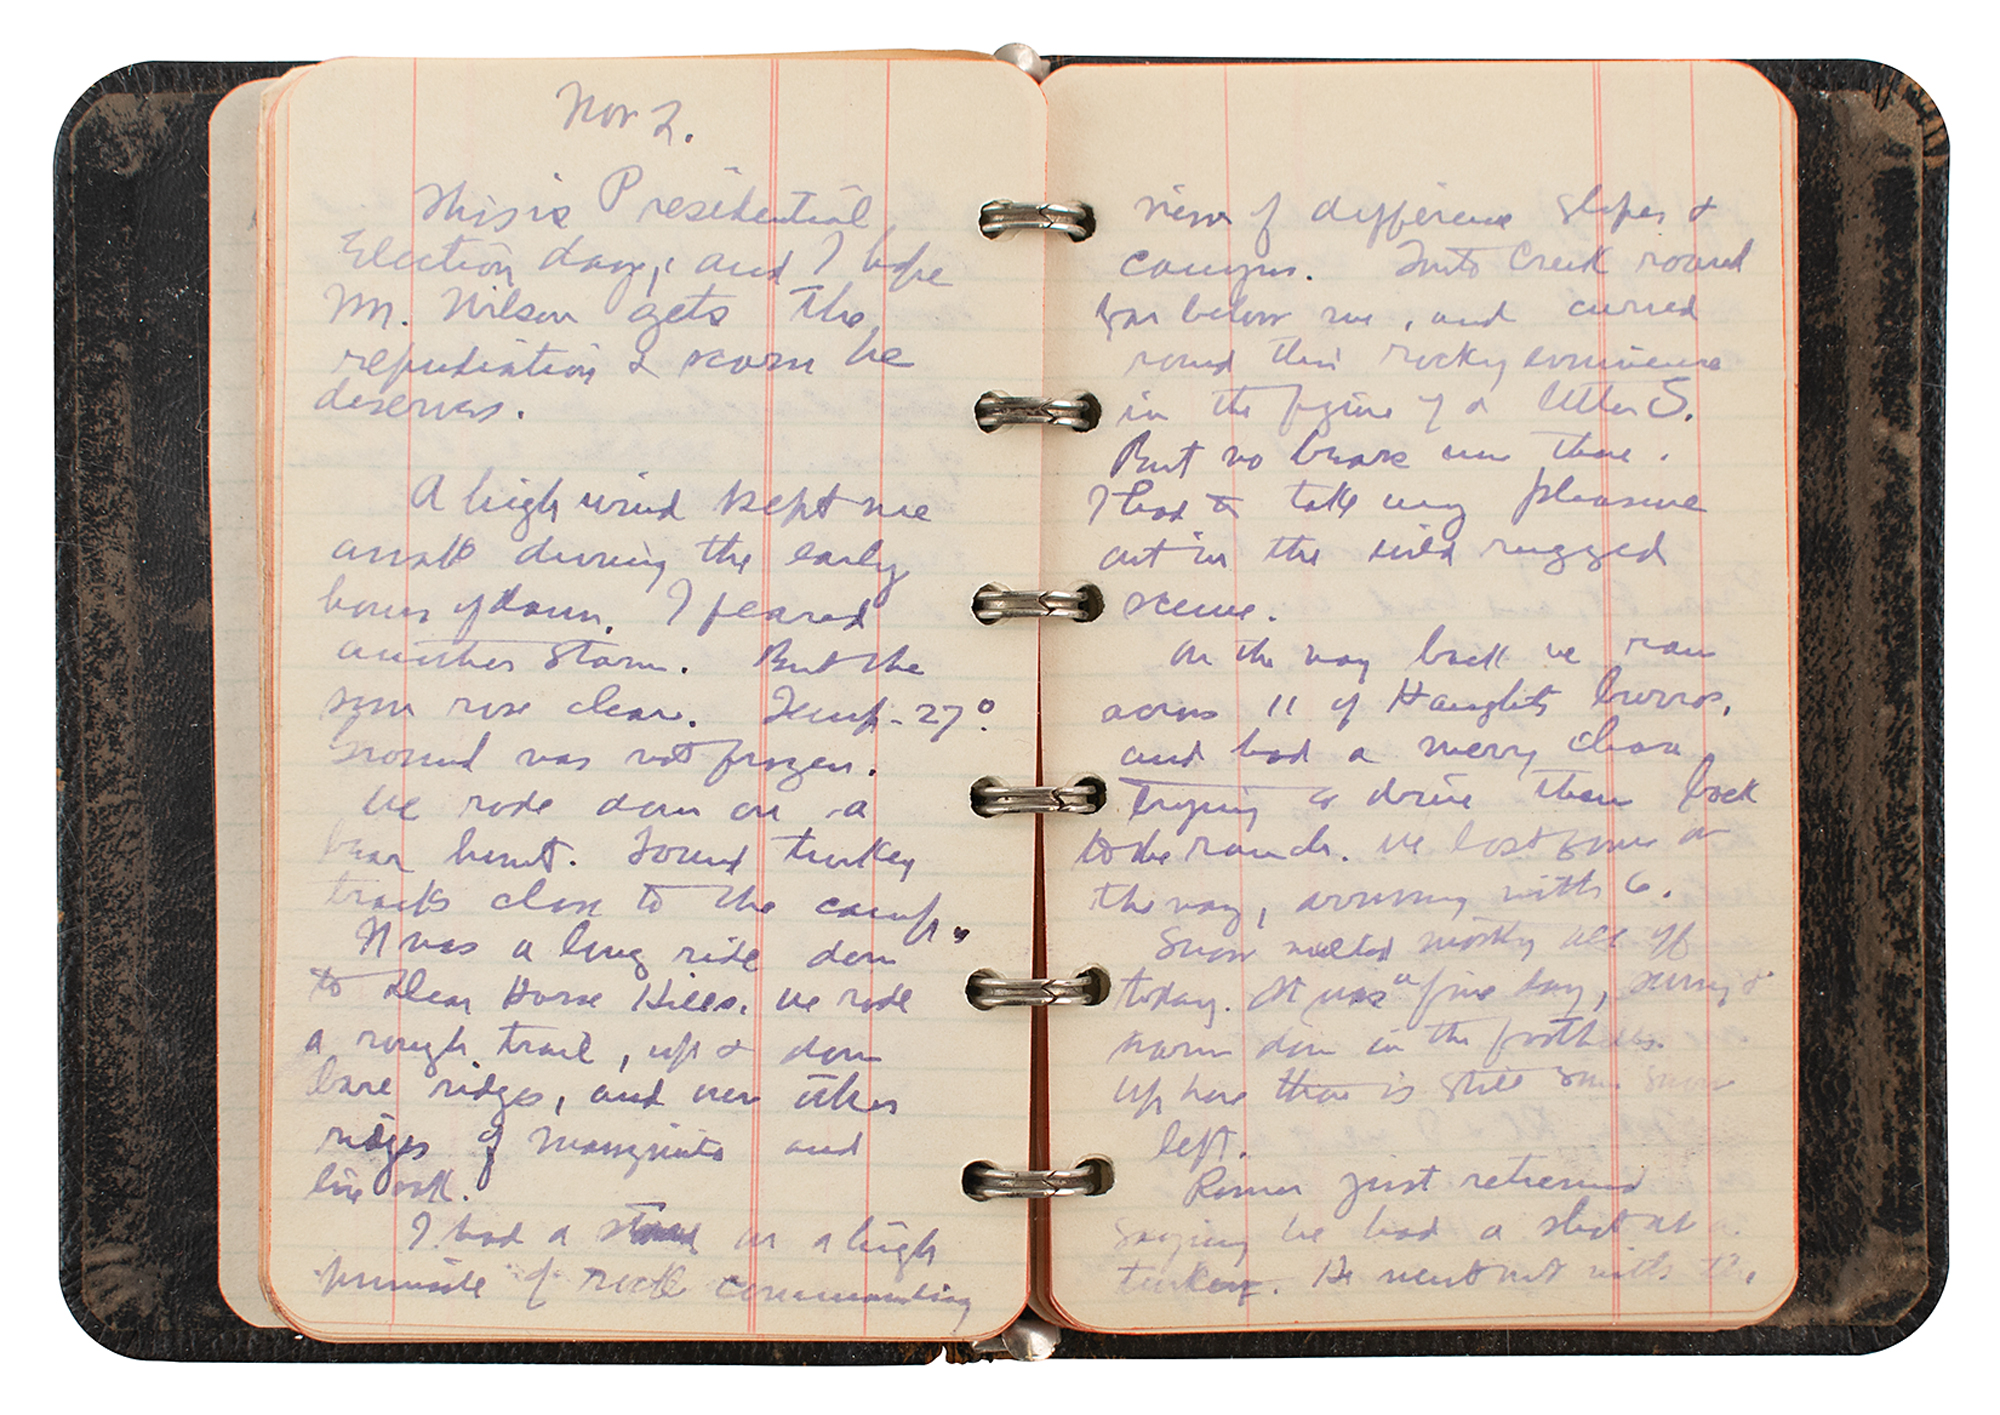 Nov 2.
This is Presidential
Election day, and I hope
Mr. Wilson gets the
repudiation & scorn he
deserves.
A high wind kept me
awake during the early
hours of dawn. I feared
another storm. But the
sun rose clear. Temp - 27°.
Ground was not frozen.
We rode down on a
bear hunt. Found turkey
tracks close to the camp.
It was a long ride down
to Dear Horse Hills. We rode
a rough trail, up & down
bare ridges, and over other
ridges of manzanita and
live oak.
I had a stand on a high
pinnacle of rock commanding
view of different slopes &
canyons. Tonto Creek roared
far below me, and curved
round this rocky eminence
in the figure of a letter S.
But no bears were there.
I had to take my pleasure
out in the wild rugged
scene.
On the way back we ran
across 11 of Haught's burros,
and had a merry chase
trying to drive them back
to the ranch. We lost some on
the way, arriving with 6.
Snow melted mostly all off
today. It was a fine day, sunny &
warm down in the foothills.
Up here there is still some snow
left.
Romer just returned
saying he had a shot at a
turkey. He went out with the